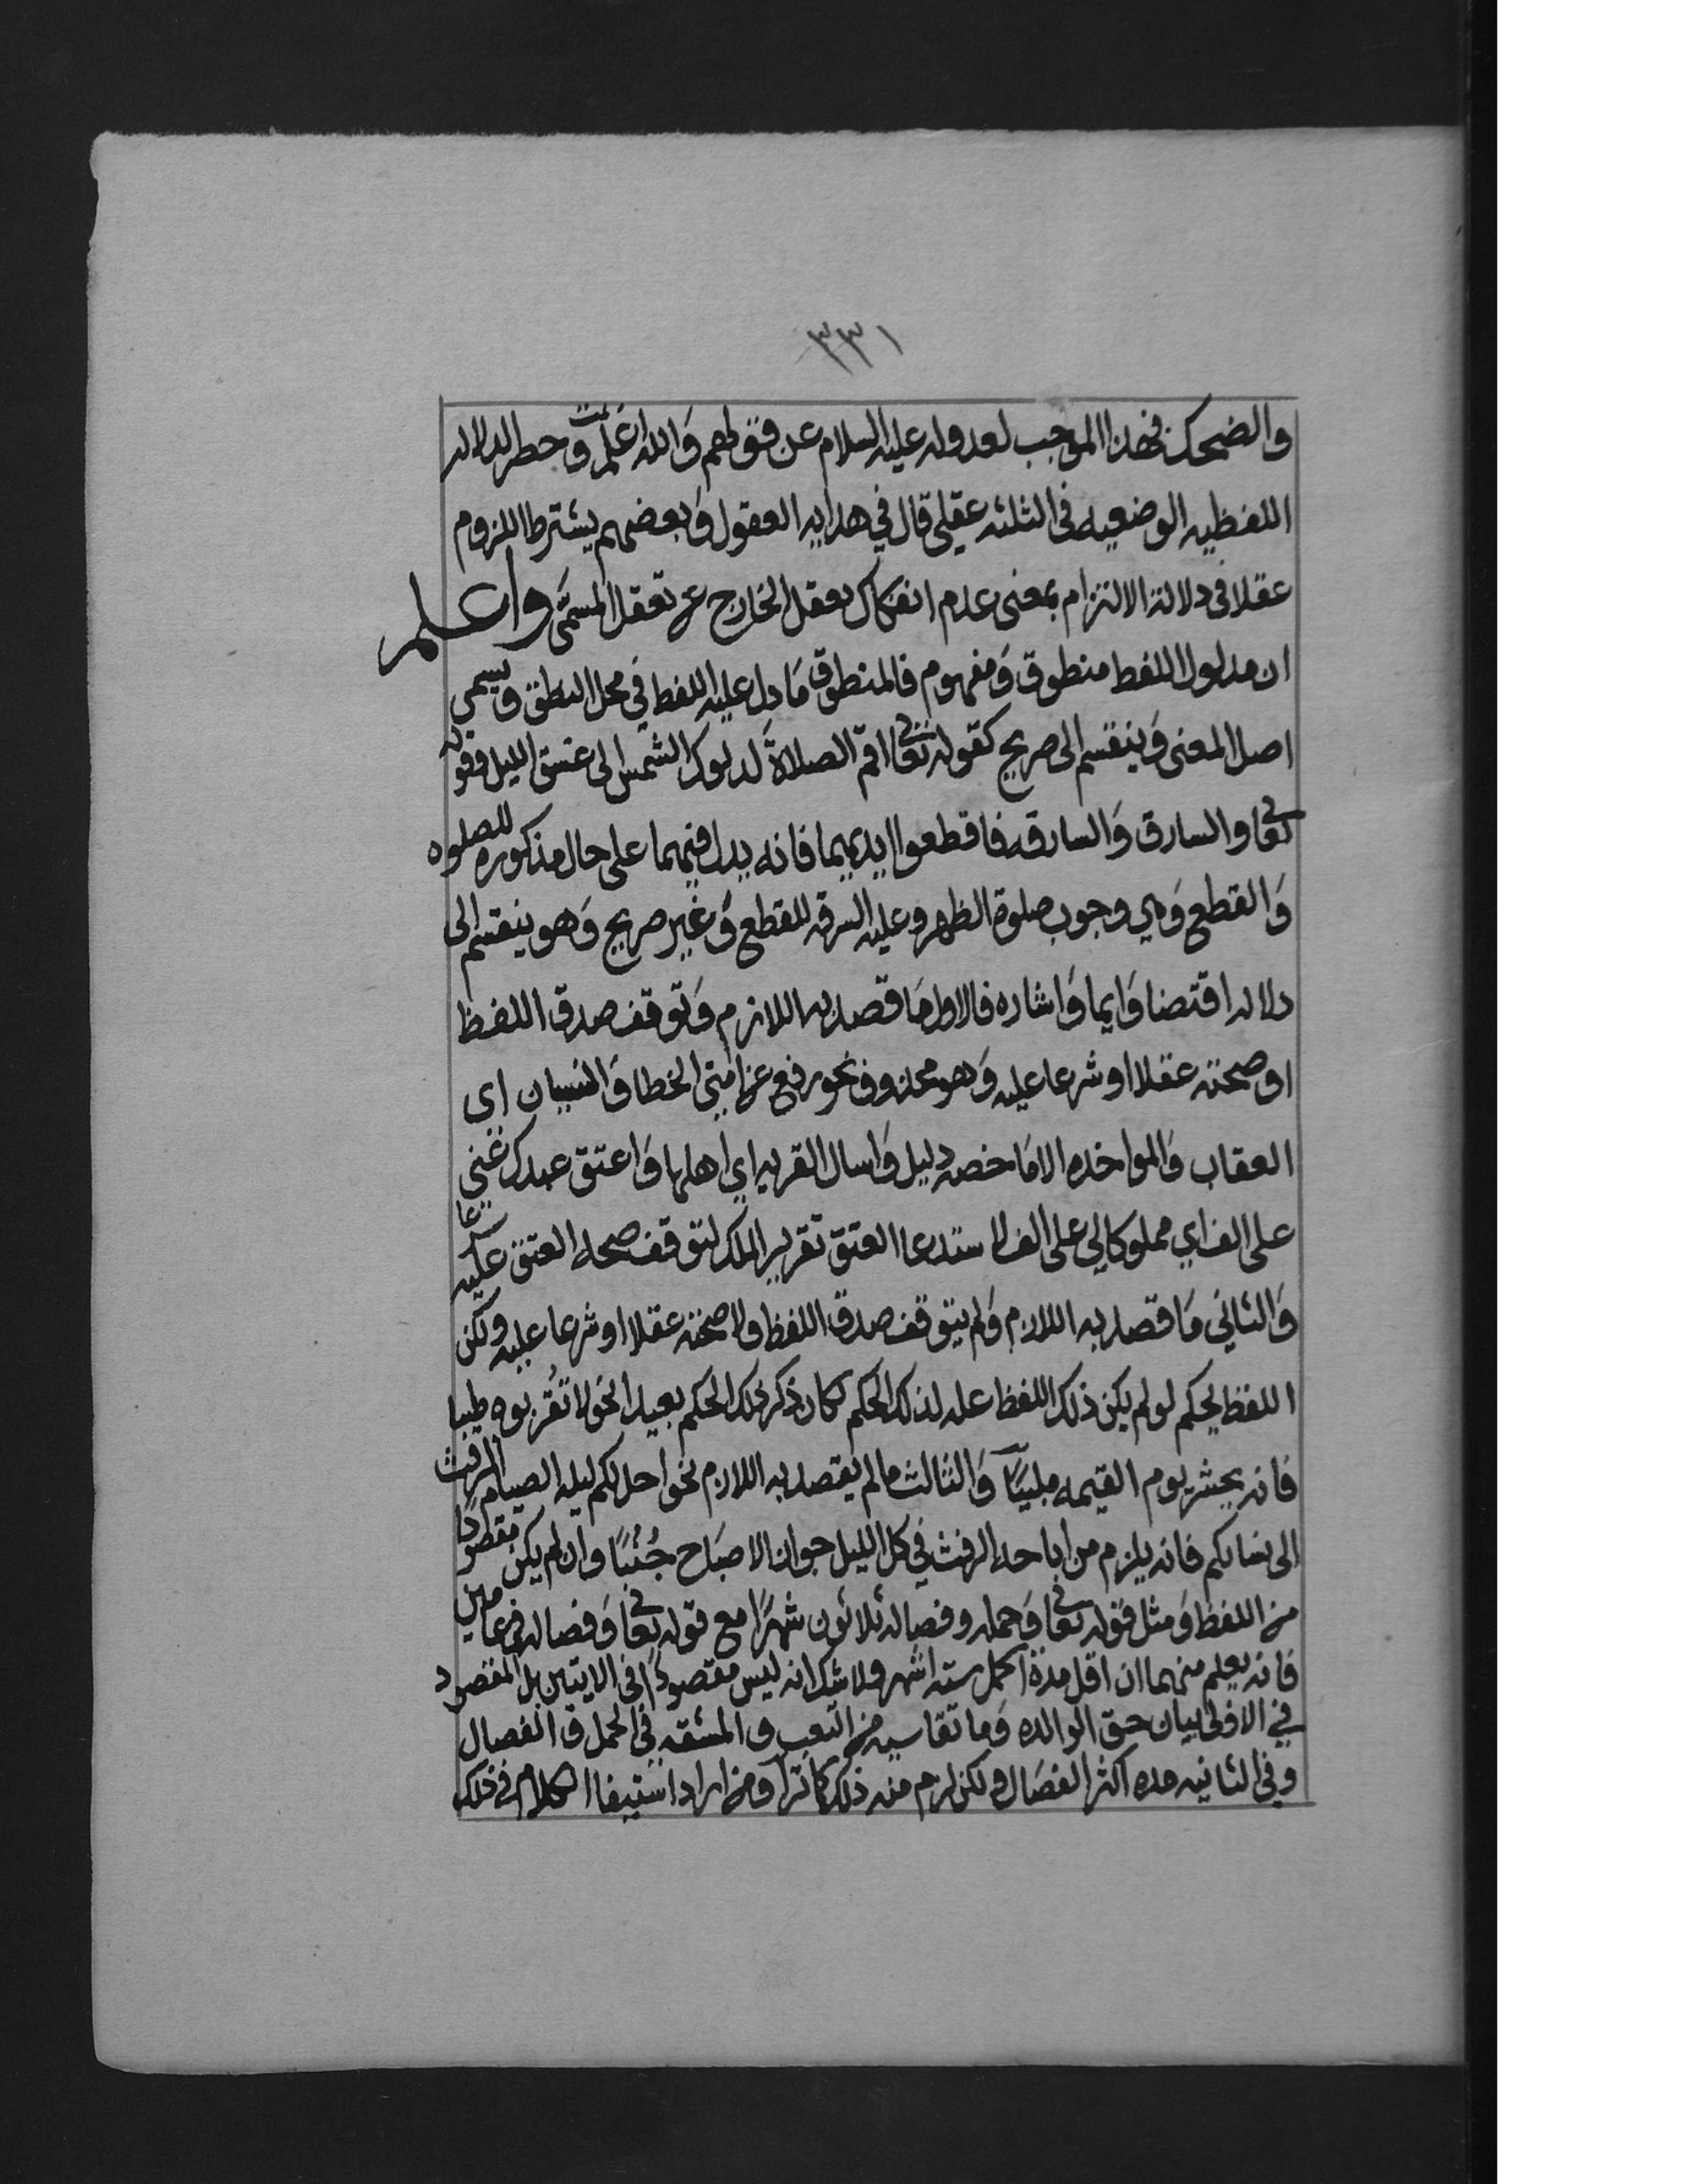 ٣٣١
والضحك فهذا الموجب لعدوله عليه السلام عن قولهم والله اعلم تمت وحصر الدلاله
اللفظيه الوضعيه فى الثلثه عقلي قال في هدايه العقول وبعضهم يشترط اللزوم
عقلا فى دلالة الالتزام بمعنى عدم انفكاك تعقل الخارج عن تعقل المسمَّى واعلم
ان مدلول اللفظ منطوق ومفهوم فالمنطوق مَا دل عليه اللفظ في محل النطق ويسمى
اصل المعنى وَينقسم الى صريح كقوله تعالى اقم الصلاة لدلوك الشمس الى غسق الليل وقوله
تعالى والسارق وَالسارقه فاقطعوا ايديهما فانه يدل فيهما على حال مذكوره للصلوه
وَالقطع وَهي وجوب صلوة الظهر وعليه السرقه للقطع وَغير صريح وَهو ينقسم الى
دلاله اقتضا وَايما وَاشاره فالاول مَا قصد به اللازم وَتوقف صدق اللفظ
او صحته عقلا او شرعا عليه وَهو محذوف نحو رفع عن امتي الخطا وَالنسيان اي
العقاب وَالمواخذه الا مَا خصه دليل وَاسال القريه اي اهلها وَاعتق عبدك عني
على الف اي مملوكا لي على الف لاستدعا العتق تقرير الملك لتوقف صحه العتق عليه شرعا
وَالثاني مَا قصد به اللازم وَلم يتوقف صدق اللفظ ولا صحته عقلا او شرعا عليه ولكن
اللفظ بحكم لو لم يكن ذلك اللفظ عله لذلك الحكم لكان ذكر ذلك الحكم بعيدا نحو لا تُقربوه طيبا
فانه يحشر يوم القيمه ملبيًا وَالثالث ما لم يقصد به اللازم نحو احل لكم ليله الصيام الرفث
الى نسايكم فانه يلزم من اباحه الرفث في كل الليل جواز الاصبَاح جُنُبًا وان لم يكن مقصودًا
من اللفظ وَمثل قوله تعالى وَحمله وفصاله ثلاثون شهرًا مع قوله تعالى وَفصاله في عامين
فانه يعلم منهما ان اقل مدة الحمل سته اشهر ولا شك انه ليس مقصودًا فى الايتين بل المقصود
في الاولى بيان حق الوالده وَما تقاسيه من التعب والمشقه في الحمل والفصال
وفى الثانيه مده اكثر الفصَال ولكن لزم منه ذلك كما ترا ومن اراد استيفا الكلام في ذلك